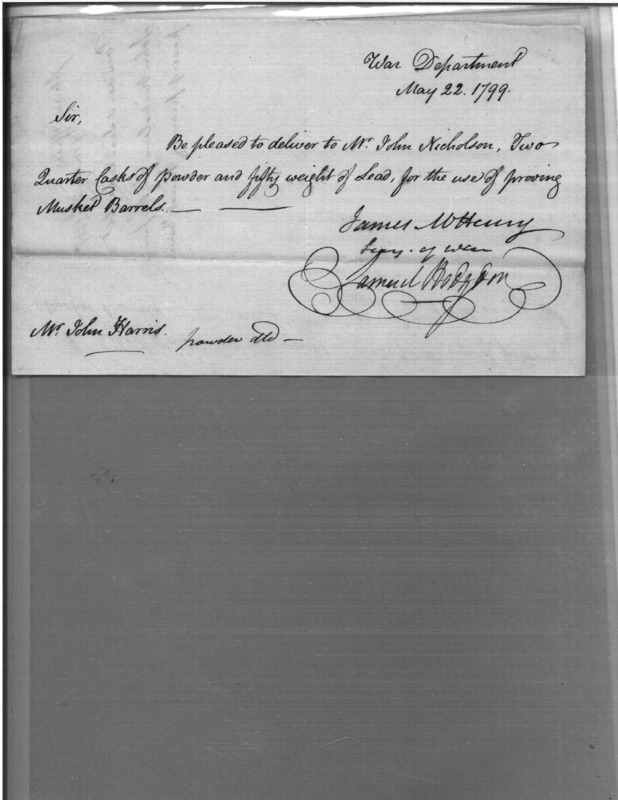 War Department
May 22. 1799.
Sir,
Be pleased to deliver to Mr. John Nicholson, Two
Quarter Casks of Powder and fifty weight of Lead, for the use of proving
Musket Barrels.
James McHenry
Secy. of War
Samuel Hodgdon
Mr. John Harris.
powder dld